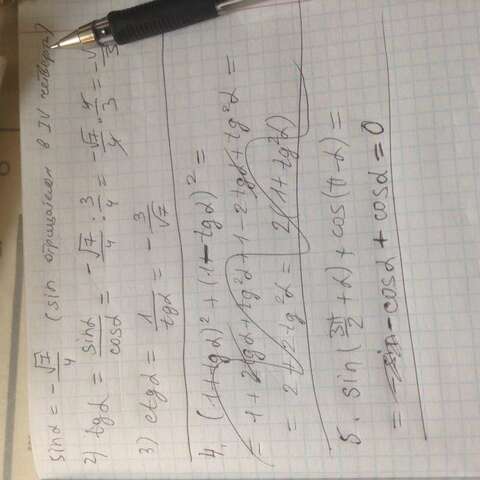 sinα = -√7/4 (sin отрицателен в IV четверти)
2) tgα = sinα/cosα = -√7/4 : 3/4 = -√7/4 · 4/3 = -√7/3
3) ctgα = 1/tgα = -3/√7
4. (1+tgα)² + (1-tgα)² =
= 1 + 2tgα + tg²α + 1 - 2tgα + tg²α =
= 2 + 2tg²α = 2(1+tg²α)
5. sin(3π/2 + α) + cos(π-α) =
= -cosα + cosα = 0